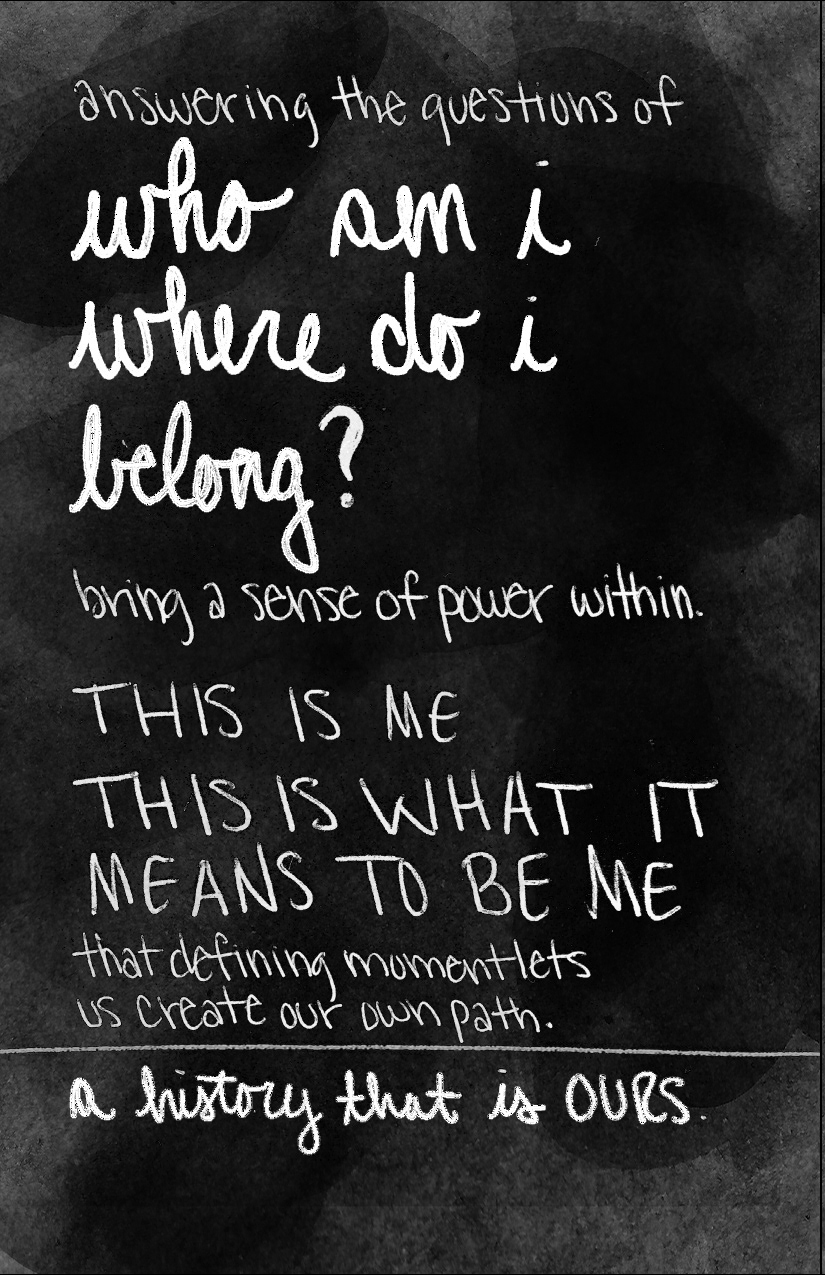 answering the questions of
who am i
where do i
belong?
bring a sense of power within.
THIS IS ME
THIS IS WHAT IT
MEANS TO BE ME
that defining moment lets
us create our own path.
a history that is OURS.